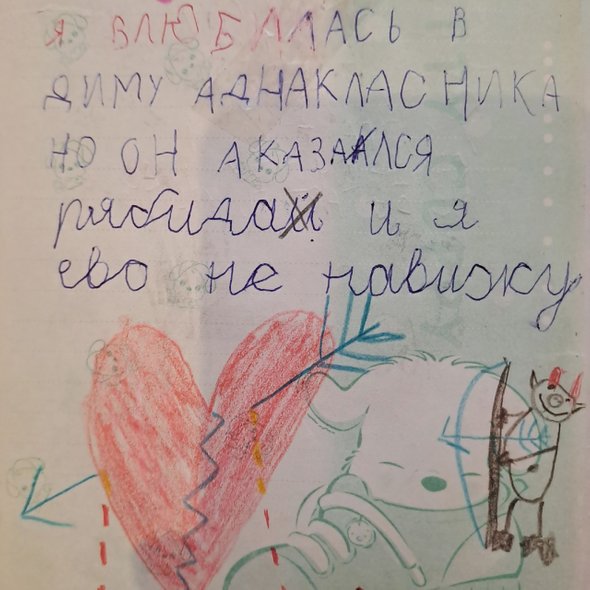 Я ВЛЮБЛЛАСЬ В
ДИМУ АДНАКЛАСНИКА
НО ОН АКАЗАЛСЯ
И я
ево не навижу